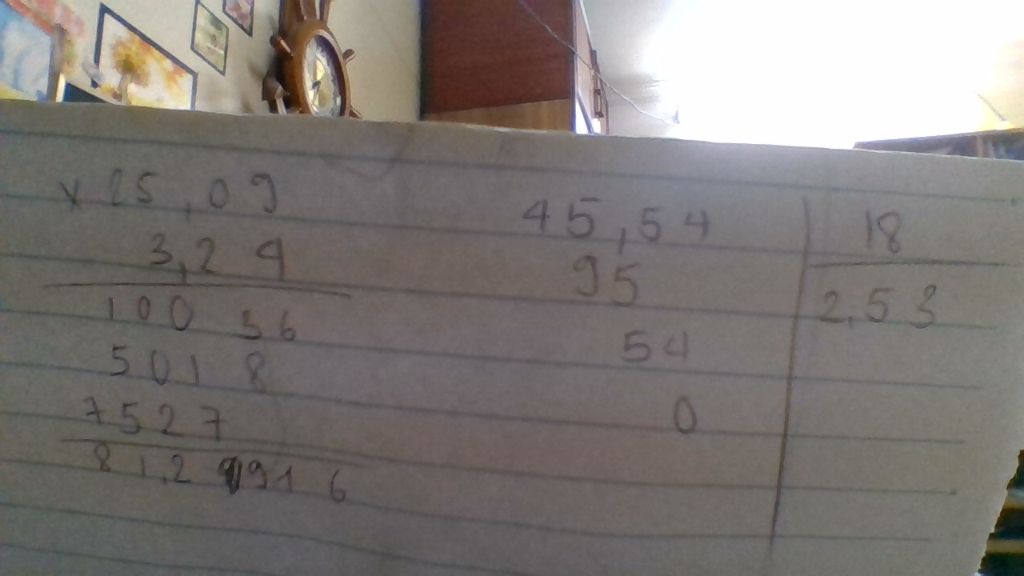 x 25,09
3,24
100 36
501 8
7527
81,2916
45,54 18
95 2,53
54
0